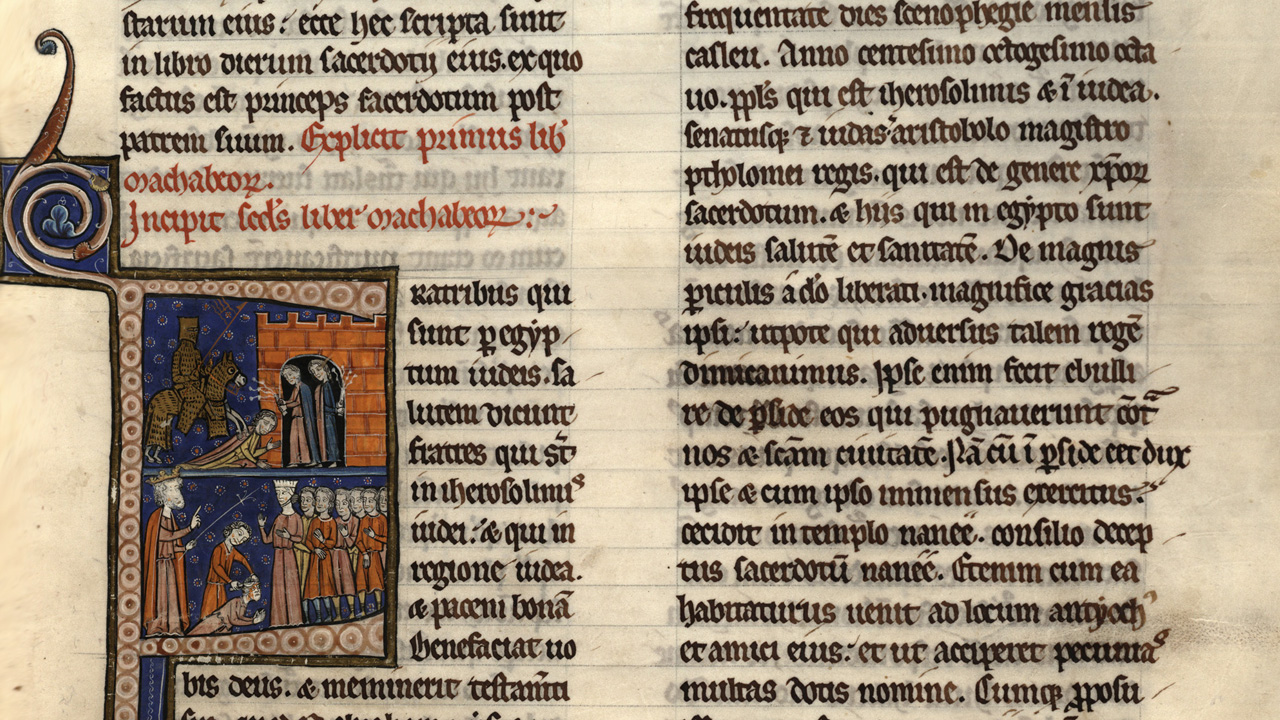 starum eius: ecce hec scripta sunt
in libro dierum sacerdotii eius. ex quo
factus est princeps sacerdotum post
patrem suum. Explicit primus lib'
machabeoꝝ.
Incipit scd's liber machabeoꝝ:
ratribus qui
sunt ꝑ egyp
tum iudeis. sa
lutem dicunt
fratres qui st̄
in iherosolimis
iudei: & qui in
regione iudea.
& pacem bonā
Benefaciat uo
bis deus. & meminerit testam̄ti
frequentate dies scenophegie mensis
casleu. Anno centesimo octogesimo octa
uo. ppl's qui est iherosolimis & ī iudea.
senatusqꝫ ⁊ iudas: aristobolo magistro
ptholomei regis. qui est de genere xp̄oꝝ
sacerdotum. & hiis qui in egypto sunt
iudeis salutē et sanitatē. De magnis
ꝑiculis a dō liberati. magnifice gracias
ipsi: utpote qui aduersus talem regē
dimicauimus. Ipse enim fecit ebulli
re de ꝑside eos qui pugnauerunt cōt
nos & scām ciuitatē. Nā cū ī ꝑside eet dux
ipse & cum ipso immensus exercitus:
cecidit in templo naneē. consilio decep
tus sacerdotū naneē. Etenim cum ea
habitaturus uenit ad locum antyoch'
et amici eius: et ut acciperet pecunias
multas dotis nomine. Cumqꝫ ꝓposu